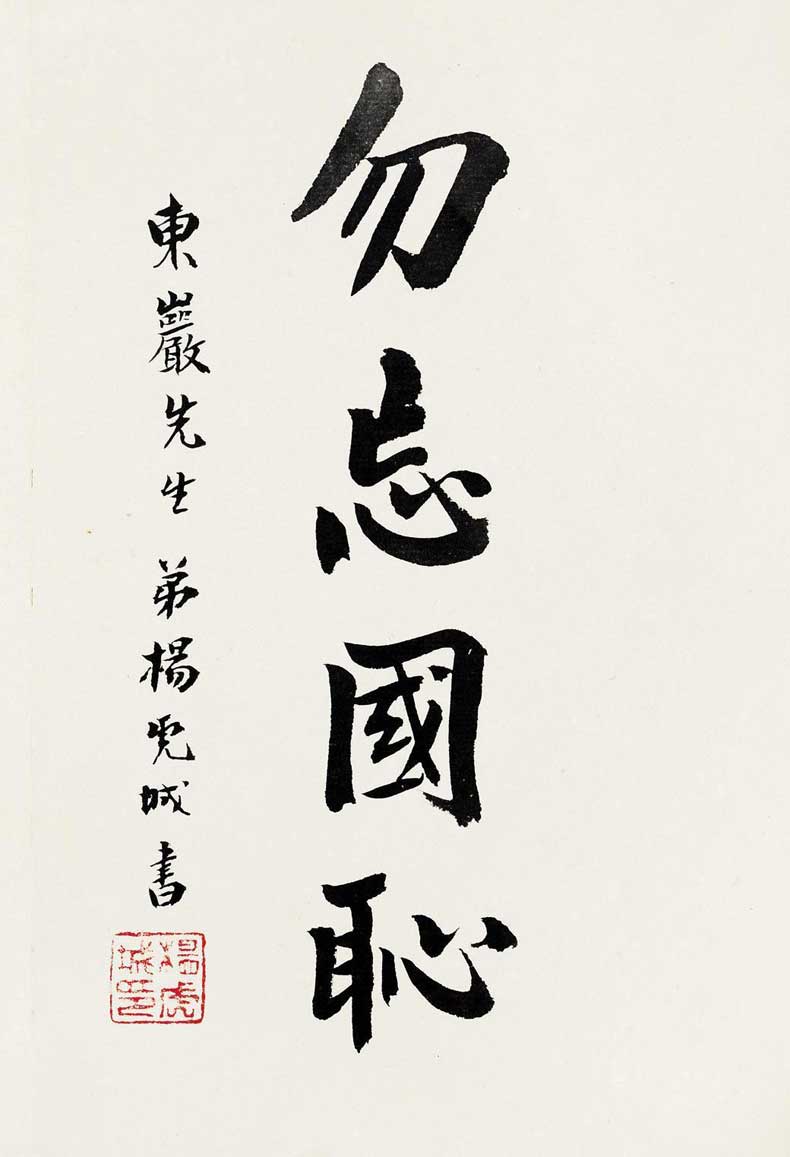 勿忘國恥
東巖先生 弟楊虎城書
楊虎城印